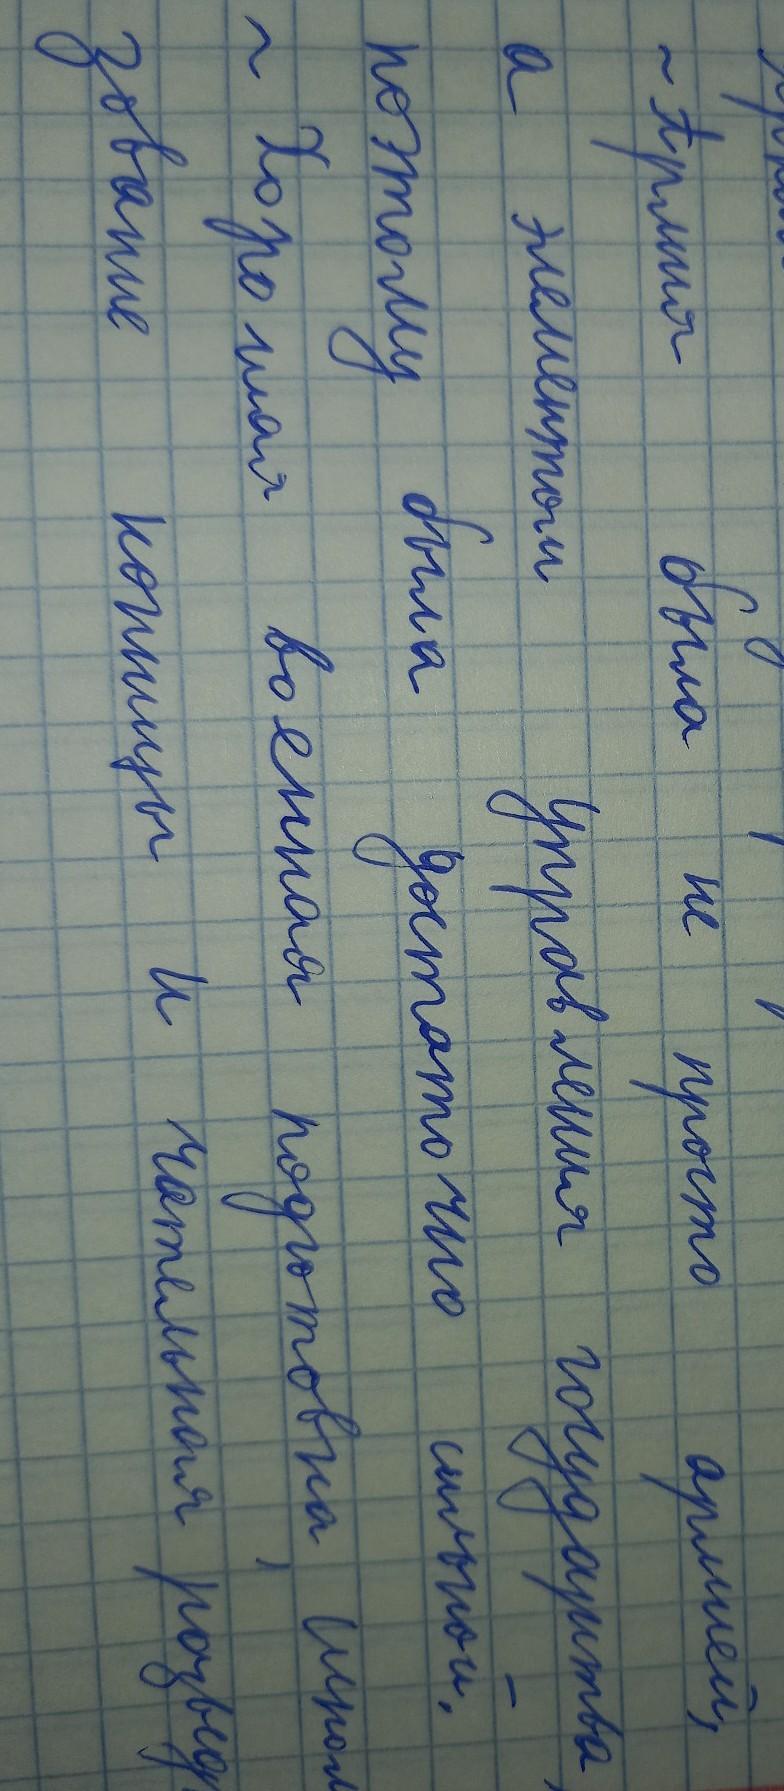 ~ Армия была не просто армией,
а элементом управления государства,
поэтому была достаточно сильной.
~ Хорошая военная подготовка,
зование конницы и чательная